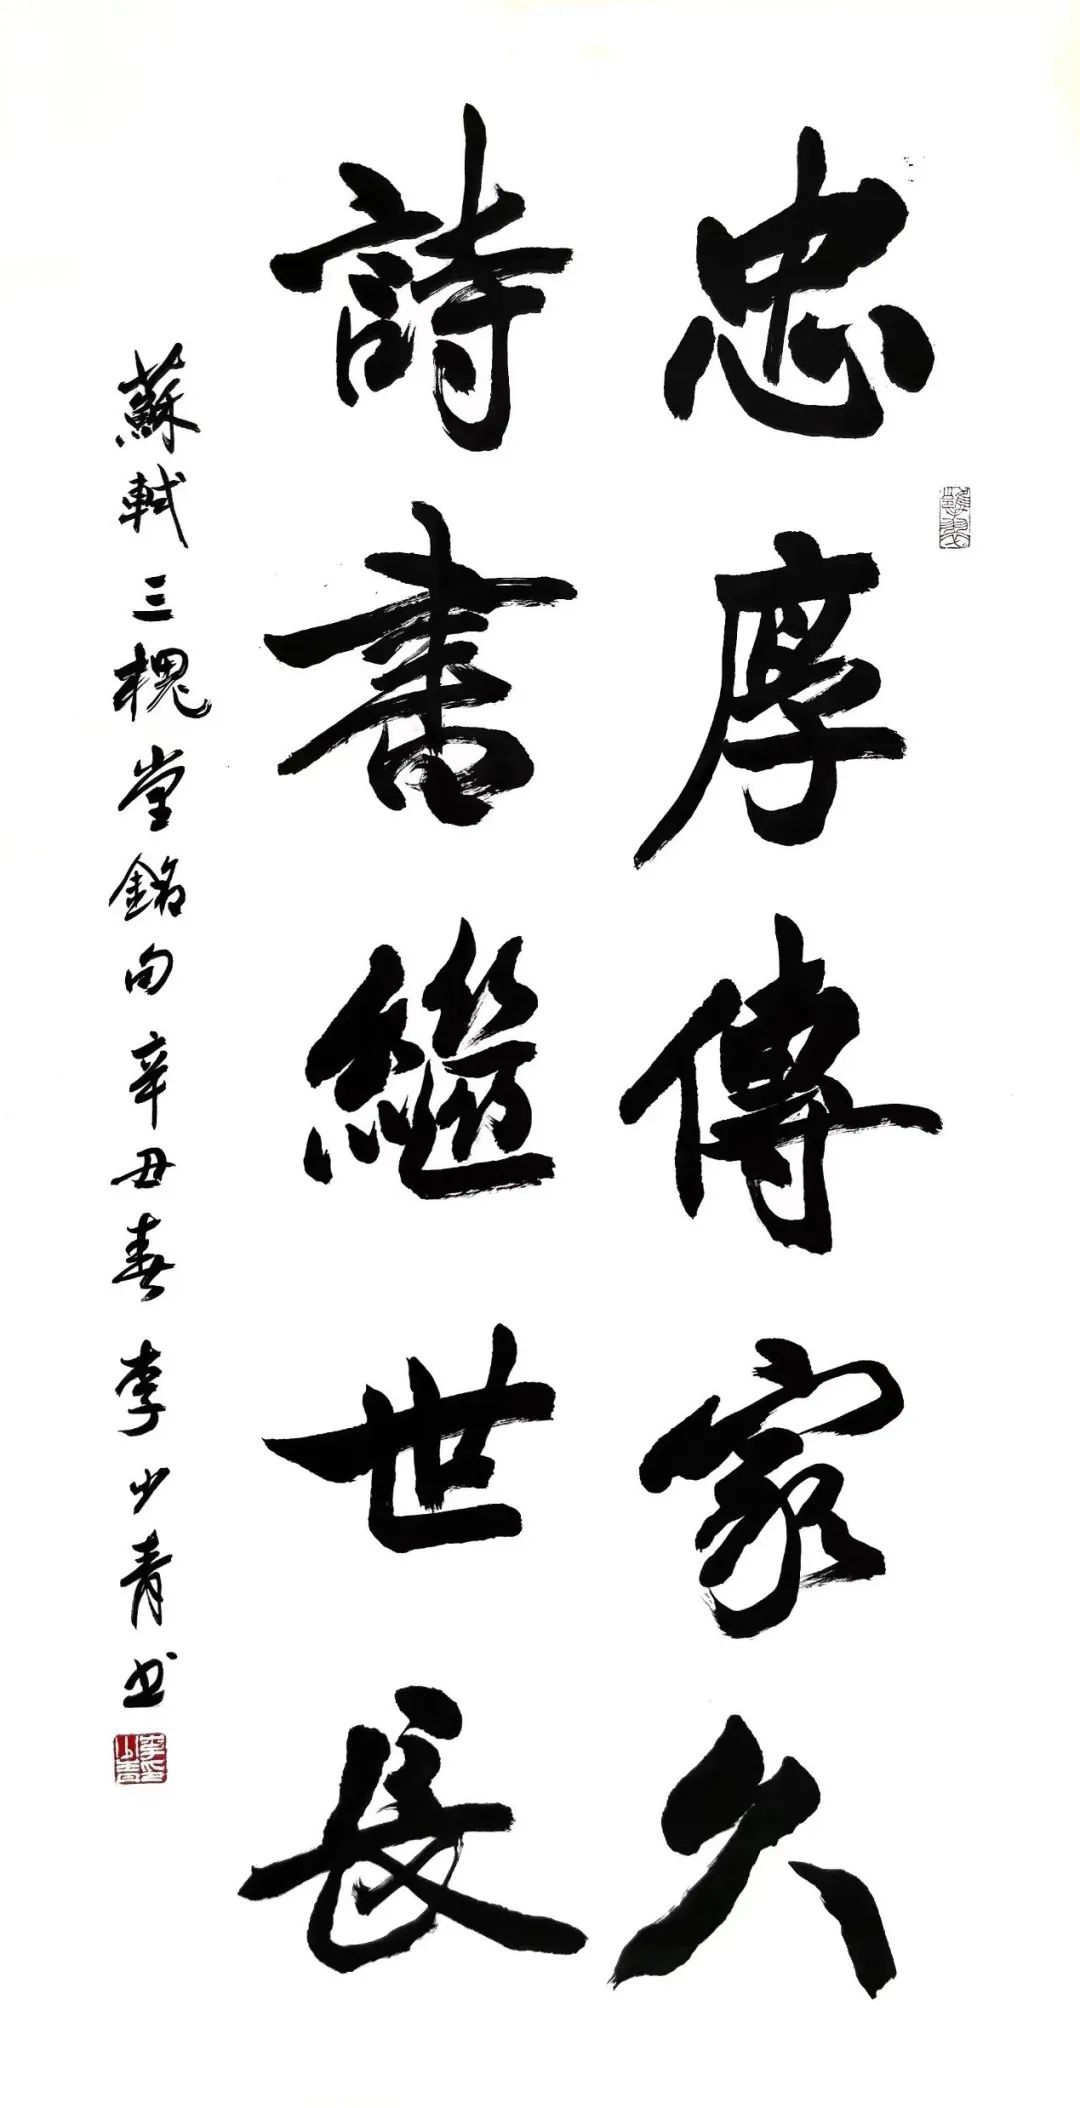 忠厚傳家久
詩書繼世長
蘇軾三槐堂銘句辛丑春李少青书